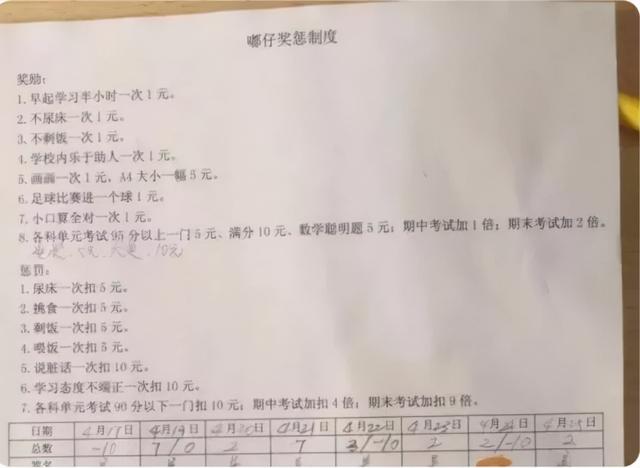 嘟仔奖惩制度
奖励:
1.早起学习半小时一次1元。
2.不尿床一次1元。
3.不剩饭一次1元。
4.学校内乐于助人一次1元。
5.画画一次1元，A4大小一幅5元。
6.足球比赛进一个球1元。
7.小口算全对一次1元。
8.各科单元考试95分以上一门5元、满分10元、数学聪明题5元；期中考试加1倍；期末考试加2倍。
10元
惩罚:
1.尿床一次扣5元。
2.挑食一次扣5元。
3.剩饭一次扣5元。
4.喂饭一次扣5元。
5.说脏话一次扣10元。
6.学习态度不端正一次扣10元。
7.各科单元考试90分以下一门扣10元；期中考试加扣4倍；期末考试加扣9倍。
日期 4月17日 4月19日 4月20日 4月21日 4月22日 4月23日 4月24日 4月25日
总数 -10 7/0 2 7 3/-10 2 2/-10 2
签名